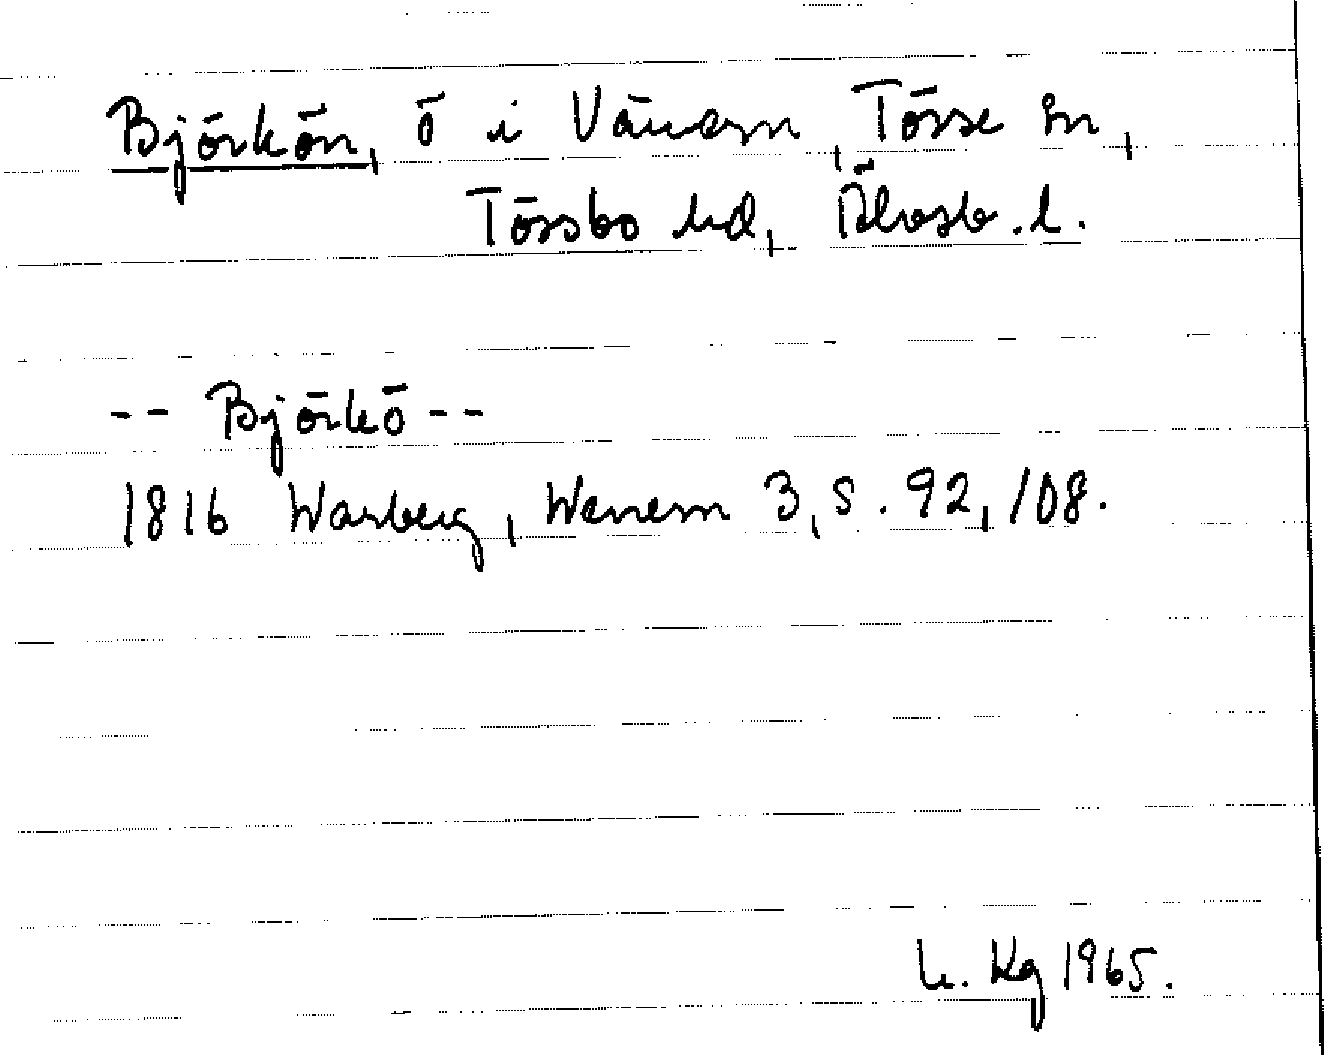 Björkön, ö i Vänern, Tösse sn,
Tössbo hd, Älvsb. l.
-- Björkö --
1816 Warberg, Wenern 3, S. 92, 108.
Kg 1965.